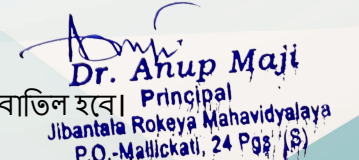 Dr. Anup Maji
বাতিল হবে।
Principal
Jibantala Rokeya Mahavidyalaya
P.O.-Mallickati, 24 Pgs (S)